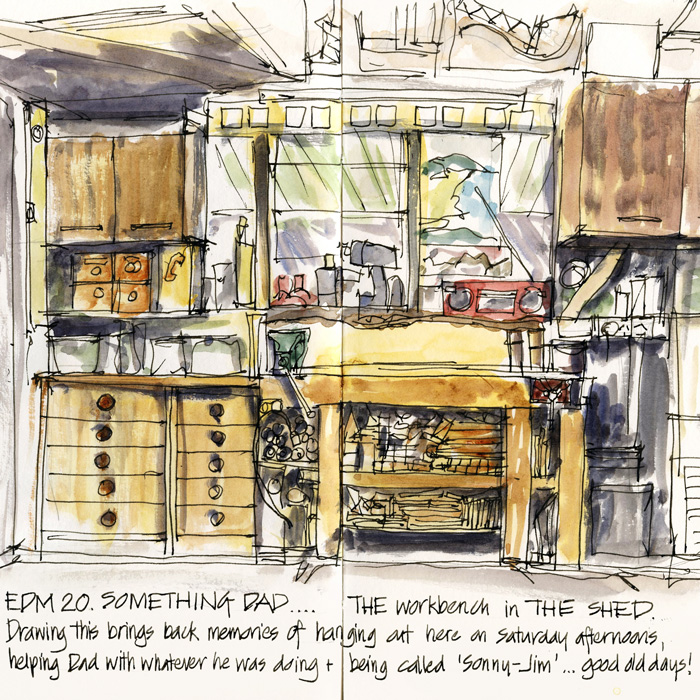 EDM 20. SOMETHING DAD.... THE workbench in THE SHED.
Drawing this brings back memories of hanging out here on Saturday afternoons,
helping Dad with whatever he was doing + being called 'Sonny-Jim'... good old days!